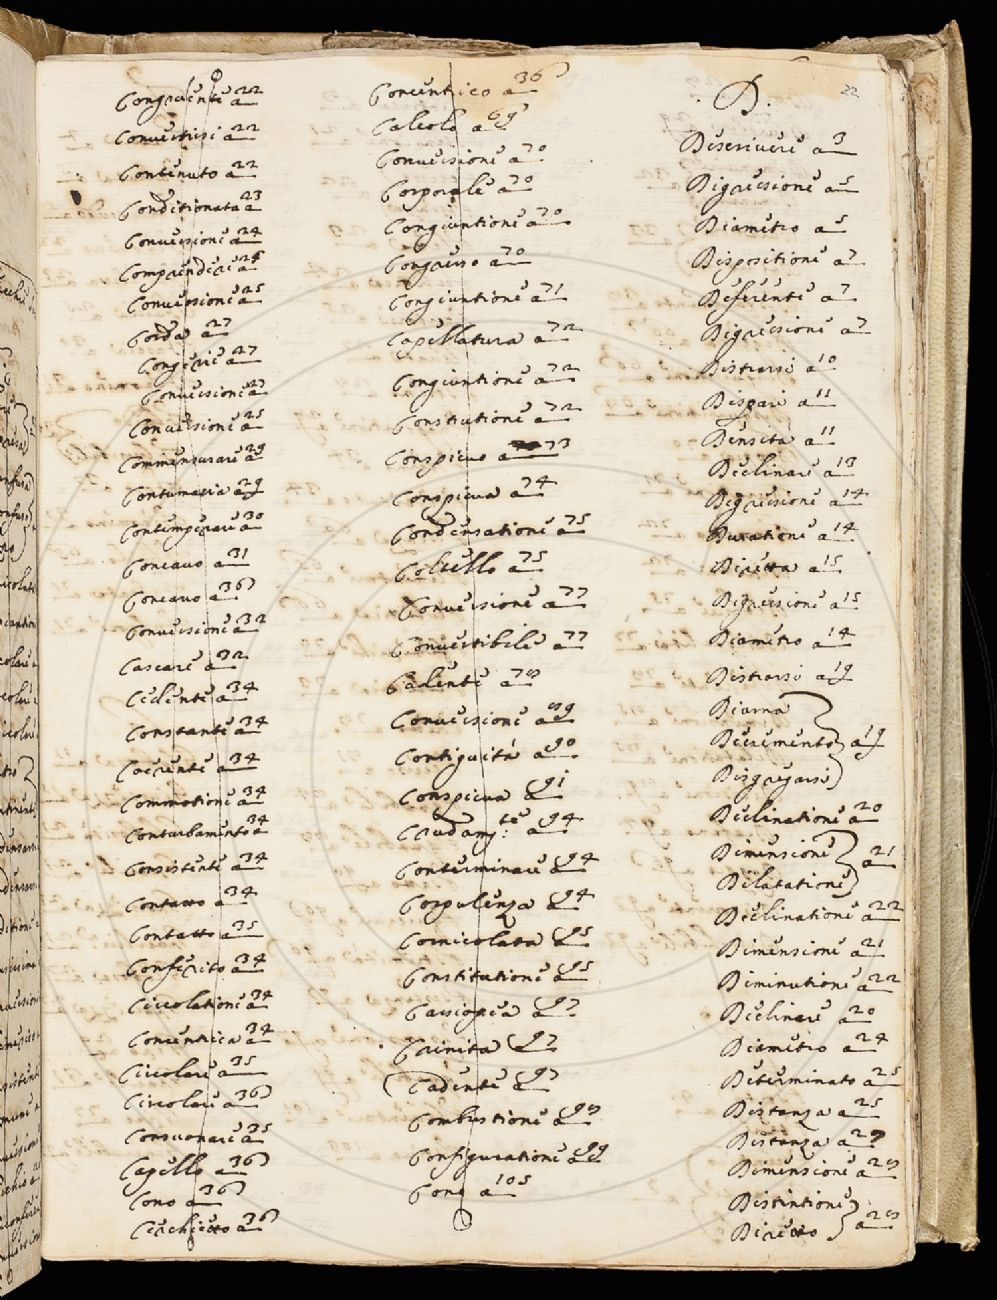 Congruente a 22
Convertirsi a 22
Contenuto a 22
Conditionata a 23
Conversione a 24
Comprendere a 25
Conversione a 25
Corda a 27
Congerie a 27
Conversione a 27
Conversione a 25
Commensurare a 29
Contumatia a 29
Contemperare a 30
Concavo a 31
Concavo a 36
Conversione a 32
Cascare a 32
Celente a 34
Constante a 34
Coerente a 34
Commotione a 34
Conturbamento a 34
Consistente a 34
Contatto a 34
Contatto a 35
Conferito a 34
Circolatione a 34
Concentrica a 34
Circolare a 35
Circolare a 36
Consuonare a 35
Capello a 36
Cono a 36
Cerchietto a 36
Concentrico a 36
Calcolo a 69
Conversione a 70
Corporale a 70
Congiuntione a 70
Congresso a 70
Congiuntione a 71
Capellatura a 72
Congiuntione a 72
Constitutione a 72
Conspicuo a 73
Conspicua a 74
Condensatione a 75
Coltello a 75
Conversione a 77
Convertibile a 77
Cadente a 78
Conversione a 89
Contiguità a 90
Conspicua a 91
Crudamte: a 94
Conterminare a 94
Corpulenza a 94
Cornicolata a 95
Constitutione a 95
Cassiopea a 97
Crinita a 97
Cadente a 97
Combustione a 98
Configuratione a 99
Cono a 105
22
.D.
Descrivere a 3
Digressione a 5
Diametro a 5
Dispositione a 7
Deferente a 7
Digressione a 7
Distrarsi a 10
Dispare a 11
Densità a 11
Declinare a 13
Digressione a 14
Duratione a 14
Diretta a 15
Digressione a 15
Diametro a 14
Distrarsi a 19
Diurna
Decremento a 19
Disgregarsi
Declinatione a 20
Dimensione
a 21
Dilatatione
Declinatione a 22
Dimensione a 21
Diminutione a 22
Declinare a 20
Diametro a 24
Determinato a 25
Distanza a 25
Distanza a 27
Dimensione a 28
Distintione
a 28
Diretto